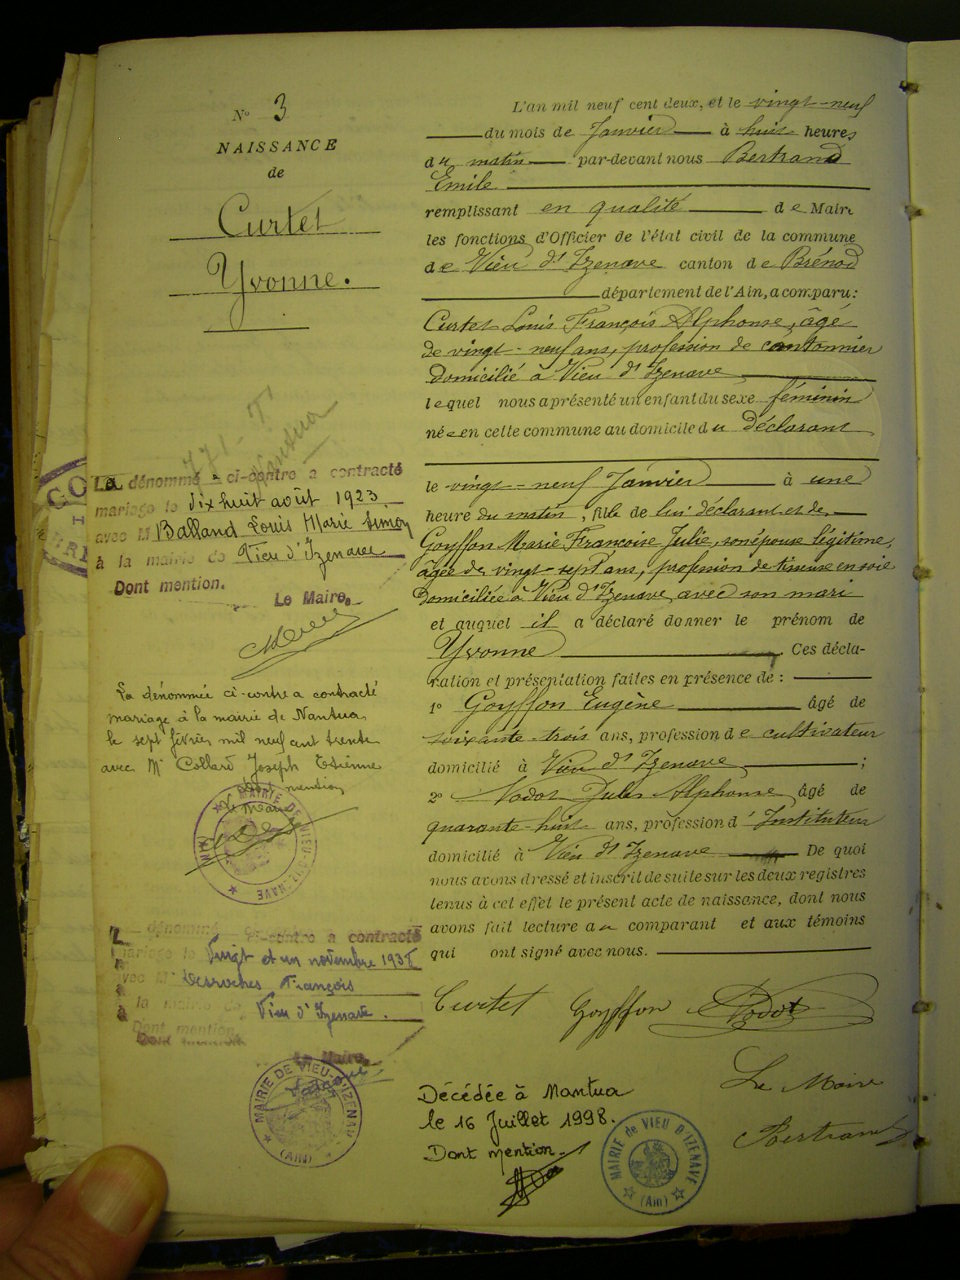 N° 3
NAISSANCE
de
Curtet
Yvonne.
La dénommée ci-contre a contracté
mariage le dix huit août 1923
avec M Balland Louis Marie Simon
à la mairie de Vieu d'Izenave
Dont mention.
Le Maire,
La dénommée ci-contre a contracté
mariage à la mairie de Nantua,
le sept février mil neuf cent trente
avec Mr Collard Joseph Etienne
Dont mention
Le Maire
MAIRIE DE VIEU-D'IZENAVE (AIN)
dénommé ci-contre a contracté
mariage le Vingt et un novembre
avec Mr Desroches François
à la mairie de Vieu d'Izenave.
Dont mention.
Le Maire,
MAIRIE DE VIEU-D'IZENAVE (AIN)
L'an mil neuf cent deux, et le vingt-neuf
du mois de Janvier à huit heures
du matin par-devant nous Bertrand
Emile
remplissant en qualité de Maire
les fonctions d'Officier de l'état civil de la commune
de Vieu d'Izenave canton de Brénod
département de l'Ain, a comparu:
Curtet Louis François Alphonse, âgé
de vingt-neuf ans, profession de cantonnier
domicilié à Vieu d'Izenave
lequel nous a présenté un enfant du sexe féminin
née en cette commune au domicile du déclarant
le vingt-neuf Janvier à une
heure du matin, fille de lui déclarant et de
Goyffon Marie Françoise Julie, son épouse légitime,
âgée de vingt-sept ans, profession de tisseuse en soie
domiciliée à Vieu d'Izenave avec son mari
et auquel il a déclaré donner le prénom de
Yvonne Ces décla-
ration et présentation faites en présence de:
1° Goyffon Eugène âgé de
soixante-trois ans, profession de cultivateur
domicilié à Vieu d'Izenave;
2° Nodot Jules Alphonse, âgé de
quarante-huit ans, profession d'Instituteur
domicilié à Vieu d'Izenave De quoi
nous avons dressé et inscrit de suite sur les deux registres
tenus à cet effet le présent acte de naissance, dont nous
avons fait lecture au comparant et aux témoins
qui ont signé avec nous.
Curtet Goyffon Nodot
Le Maire
Bertrand
Décédée à Nantua
le 16 Juillet 1998.
Dont mention.
MAIRIE de VIEU D'IZENAVE (Ain)